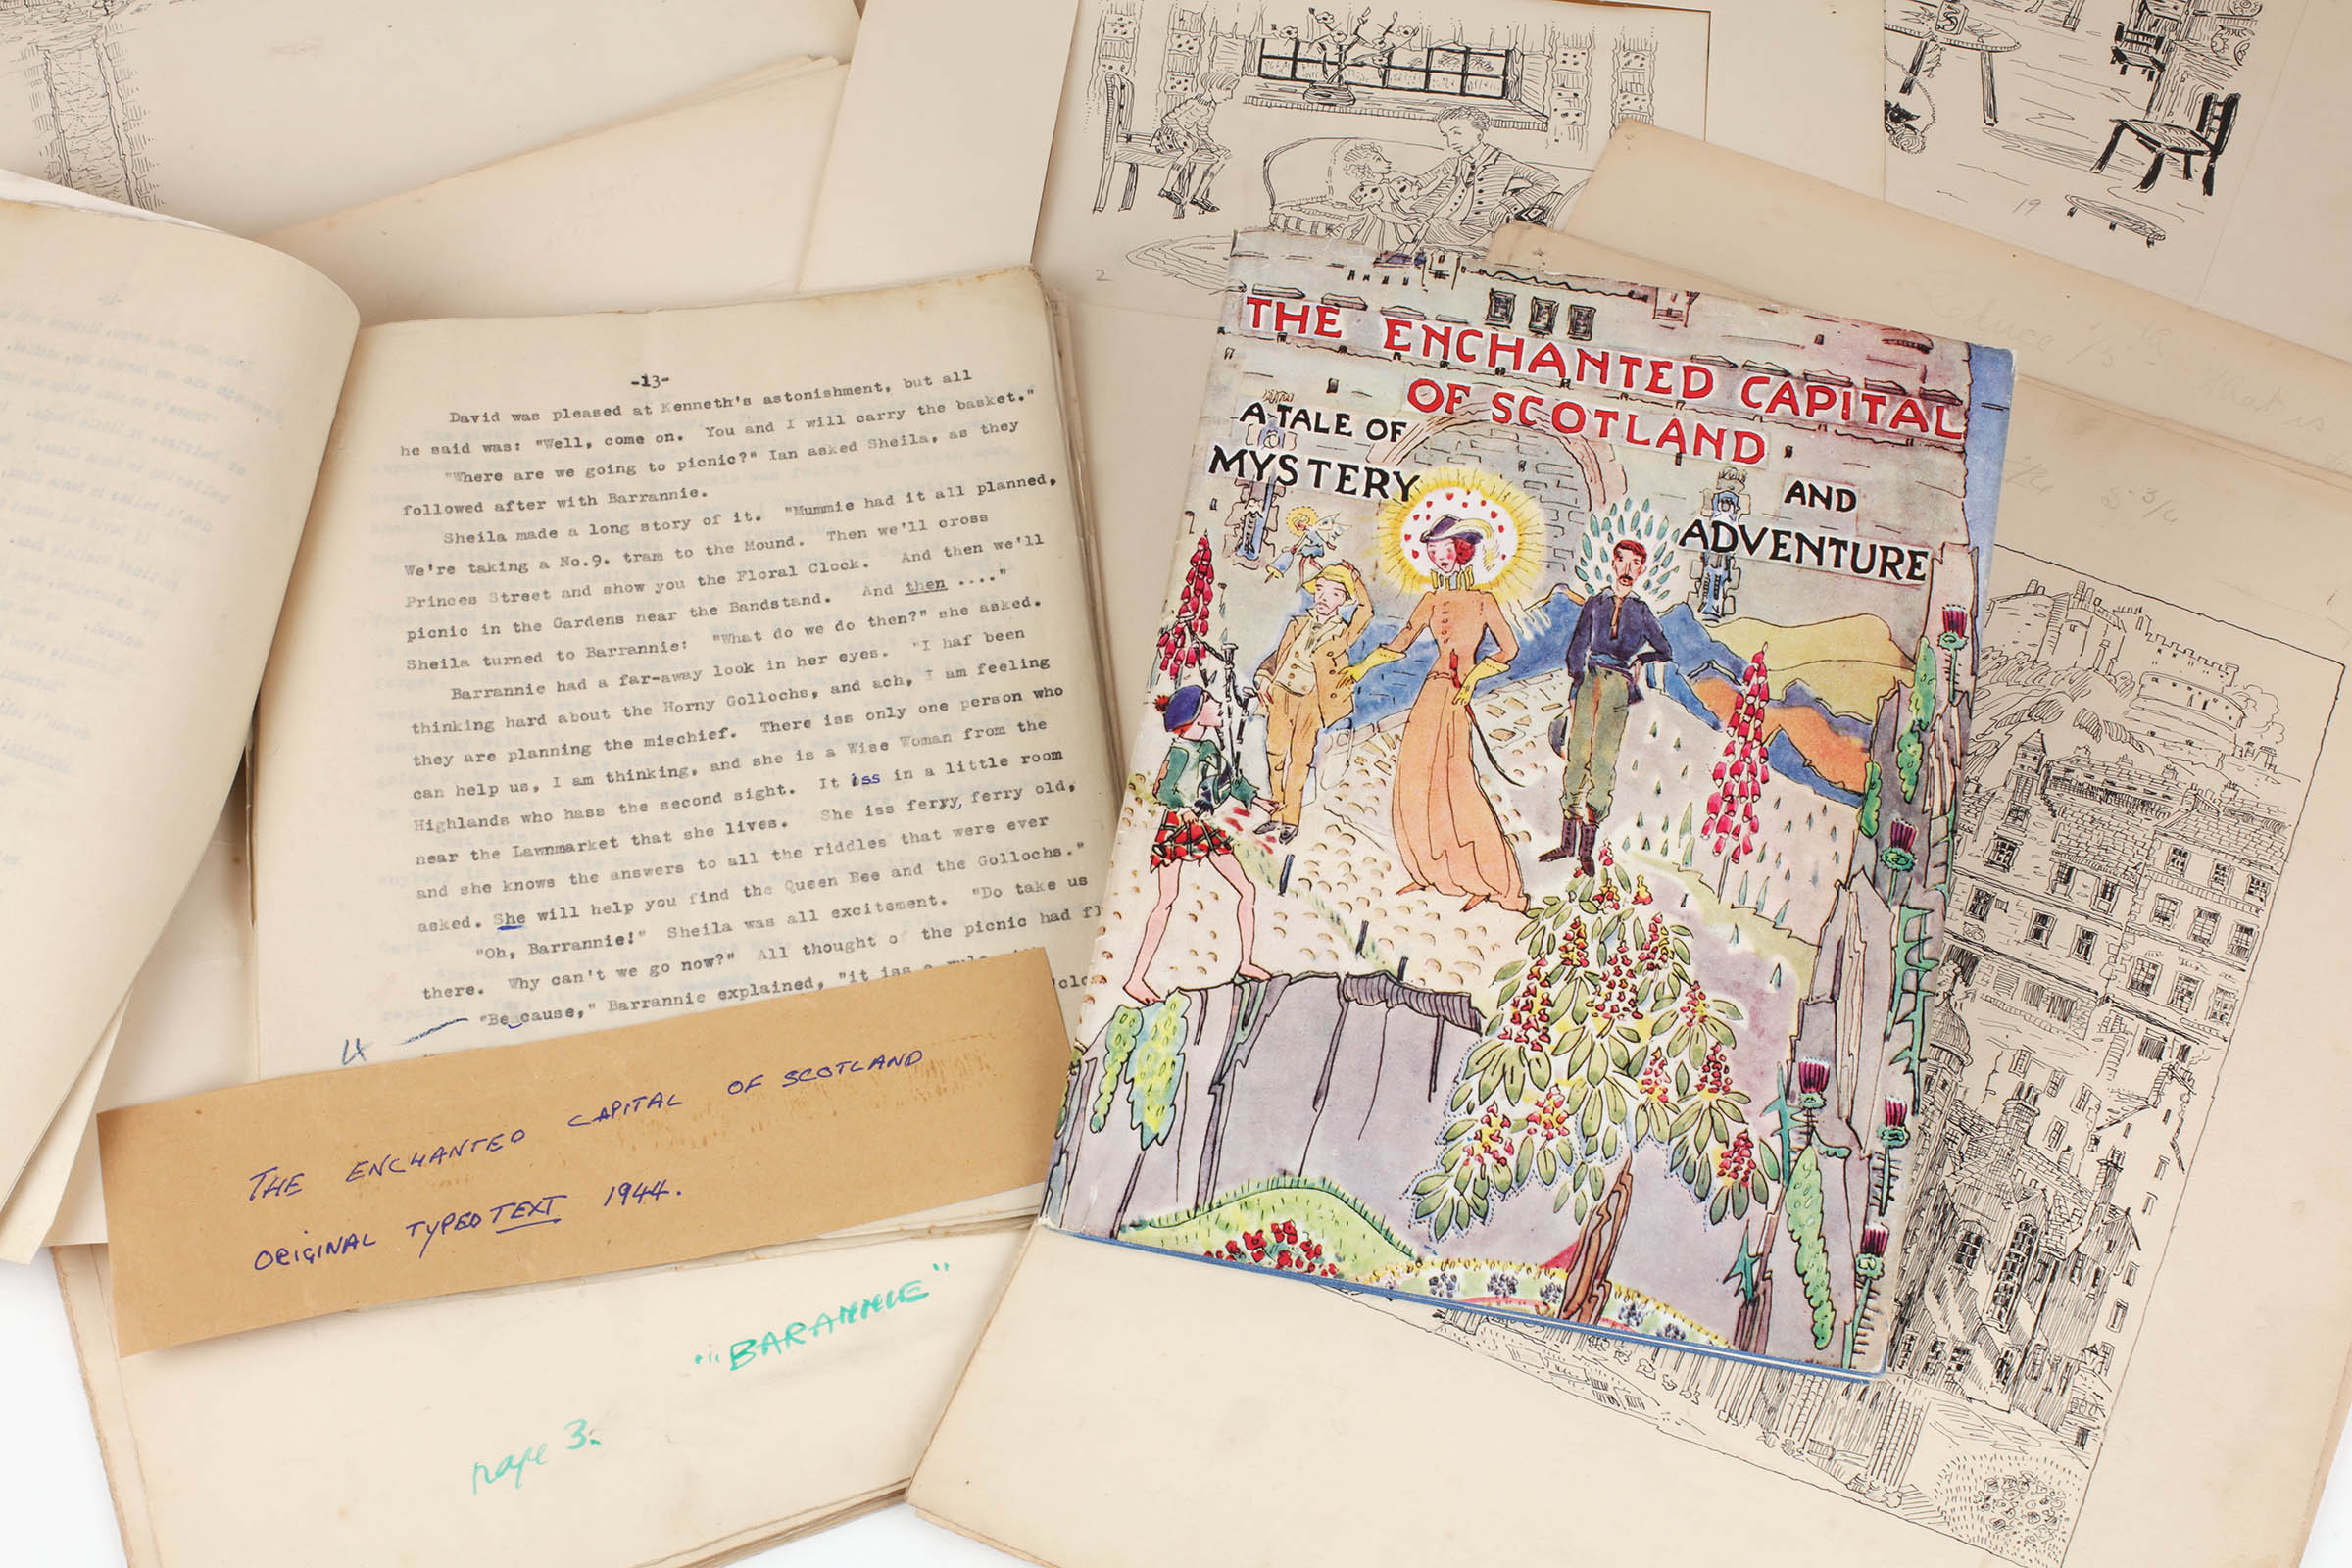 -13-
David was pleased at Kenneth's astonishment, but all
he said was: "Well, come on. You and I will carry the basket."
"Where are we going to picnic?" Ian asked Sheila, as they
followed after with Barrannie.
Sheila made a long story of it. "Mummie had it all planned,
We're taking a No.9. tram to the Mound. Then we'll cross
Princes Street and show you the Floral Clock. And then we'll
picnic in the Gardens near the Bandstand. And then ...."
Sheila turned to Barrannie: "What do we do then?" she asked.
Barrannie had a far-away look in her eyes. "I haf been
thinking hard about the Horny Gollochs, and ach, I am feeling
they are planning the mischief. There iss only one person who
can help us, I am thinking, and she is a Wise Woman from the
Highlands who hass the second sight. It iss in a little room
near the Lawnmarket that she lives. She iss ferry, ferry old,
and she knows the answers to all the riddles that were ever
asked. She will help you find the Queen Bee and the Gollochs."
"Oh, Barrannie!" Sheila was all excitement. "Do take us
there. Why can't we go now?" All thought o the picnic had
"Beacause," Barrannie explained, "it iss a
THE ENCHANTED CAPITAL OF SCOTLAND
ORIGINAL TYPED TEXT 1944.
"BARANNIE"
page 3.
THE ENCHANTED CAPITAL
OF SCOTLAND
A TALE OF
MYSTERY
AND
ADVENTURE
2
19